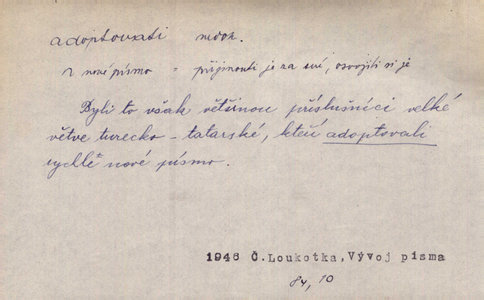 adoptovati nedok.
~ nové písmo = přijmouti je za své, osvojiti si je
Byli to však většinou příslušníci velké
větve turecko-tatarské, kteří adoptovali
rychle nové písmo.
1946 Č.Loukotka,Vývoj písma
84, 10